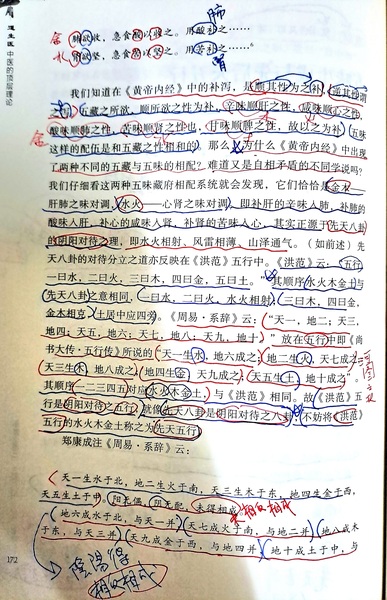 道生医 中医的顶层理论
肺
金 肺欲收，急食酸以收之。用酸补之……
水 肾欲坚，急食苦以坚之。用苦补之……
肾
我们知道在《黄帝内经》中的补泻，是顺其性为之补，逆其性谓
之泻。五藏之所欲，顺所欲之性为补，辛味顺肝之性，咸味顺心之性，
酸味顺肺之性，苦味顺肾之性也，甘味顺脾之性，故以之为补。五味
金
这样的配伍是和五藏之性相和的。那么，为什么《黄帝内经》中出现
了两种不同的五藏与五味的相配？难道又是自相矛盾的不同学说吗？
我们仔细看这两种五味藏府相配系统就会发现，它们恰恰是金木——
肝肺之味对调，水火——心肾之味对调，即补肝的辛味入肺，补肺的
酸味入肝，补心的咸味入肾，补肾的苦味入心，其实正源于先天八卦
的阴阳对待之理，即水火相射，风雷相薄，山泽通气。（如前述）先
天八卦的对待分立之道亦反映在《洪范》五行中。《洪范》云：“五行，
一曰水，二曰火，三曰木，四曰金，五曰土。”其顺序水火木金土与
先天八卦之意相同，（一曰水，二曰火，水火相射）（三曰木，四曰金，
金木相克）土居中应四旁。《周易·系辞》云：“天一，地二；天三，
地四；天五，地六；天七，地八；天九，地十”放在五行中即《尚
书大传·五行传》所说的“天一生水，地六成之；地二生火，天七成之；
天三生木，地八成之；地四生金，天九成之；天五生土，地十成之”。
其顺序一二三四五对应水火木金土，与《洪范》相同。故《洪范》五
行是阴阳对待之五行，就像先天八卦是阴阳对待之八卦，不妨将《洪范》
五行的水火木金土称之为先天五行。
郑康成注《周易·系辞》云：
天一生水于北，地二生火于南，天三生木于东，地四生金于西，
天五生土于中。阳无偶，阴无配，未得相成。
地六成水于北，与天一并；天七成火于南，与地二并；地八成木
于东，与天三并；天九成金于西，与地四并；地十成土于中，与
172
陰陽得
相以相成